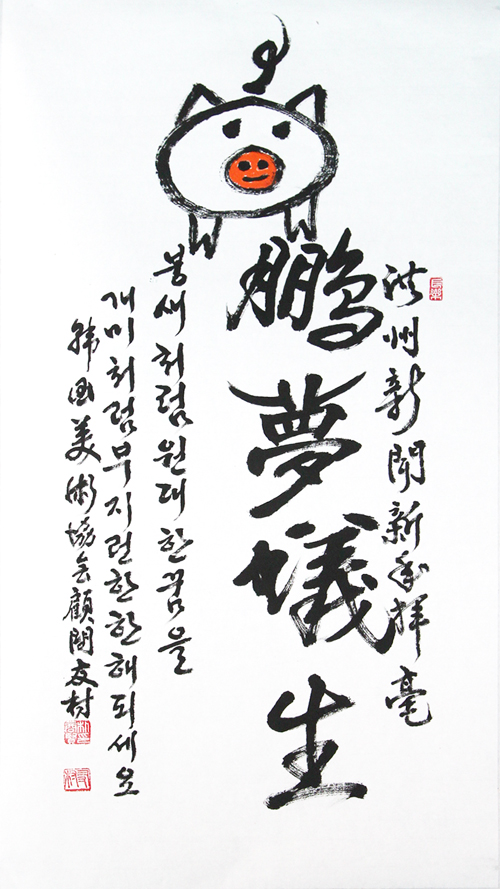 洪州新聞新年揮毫
鵬夢蟻生
붕새처럼 원대한 꿈을
개미처럼 부지런한 한해 되세요
韓國美術協会顧問友村